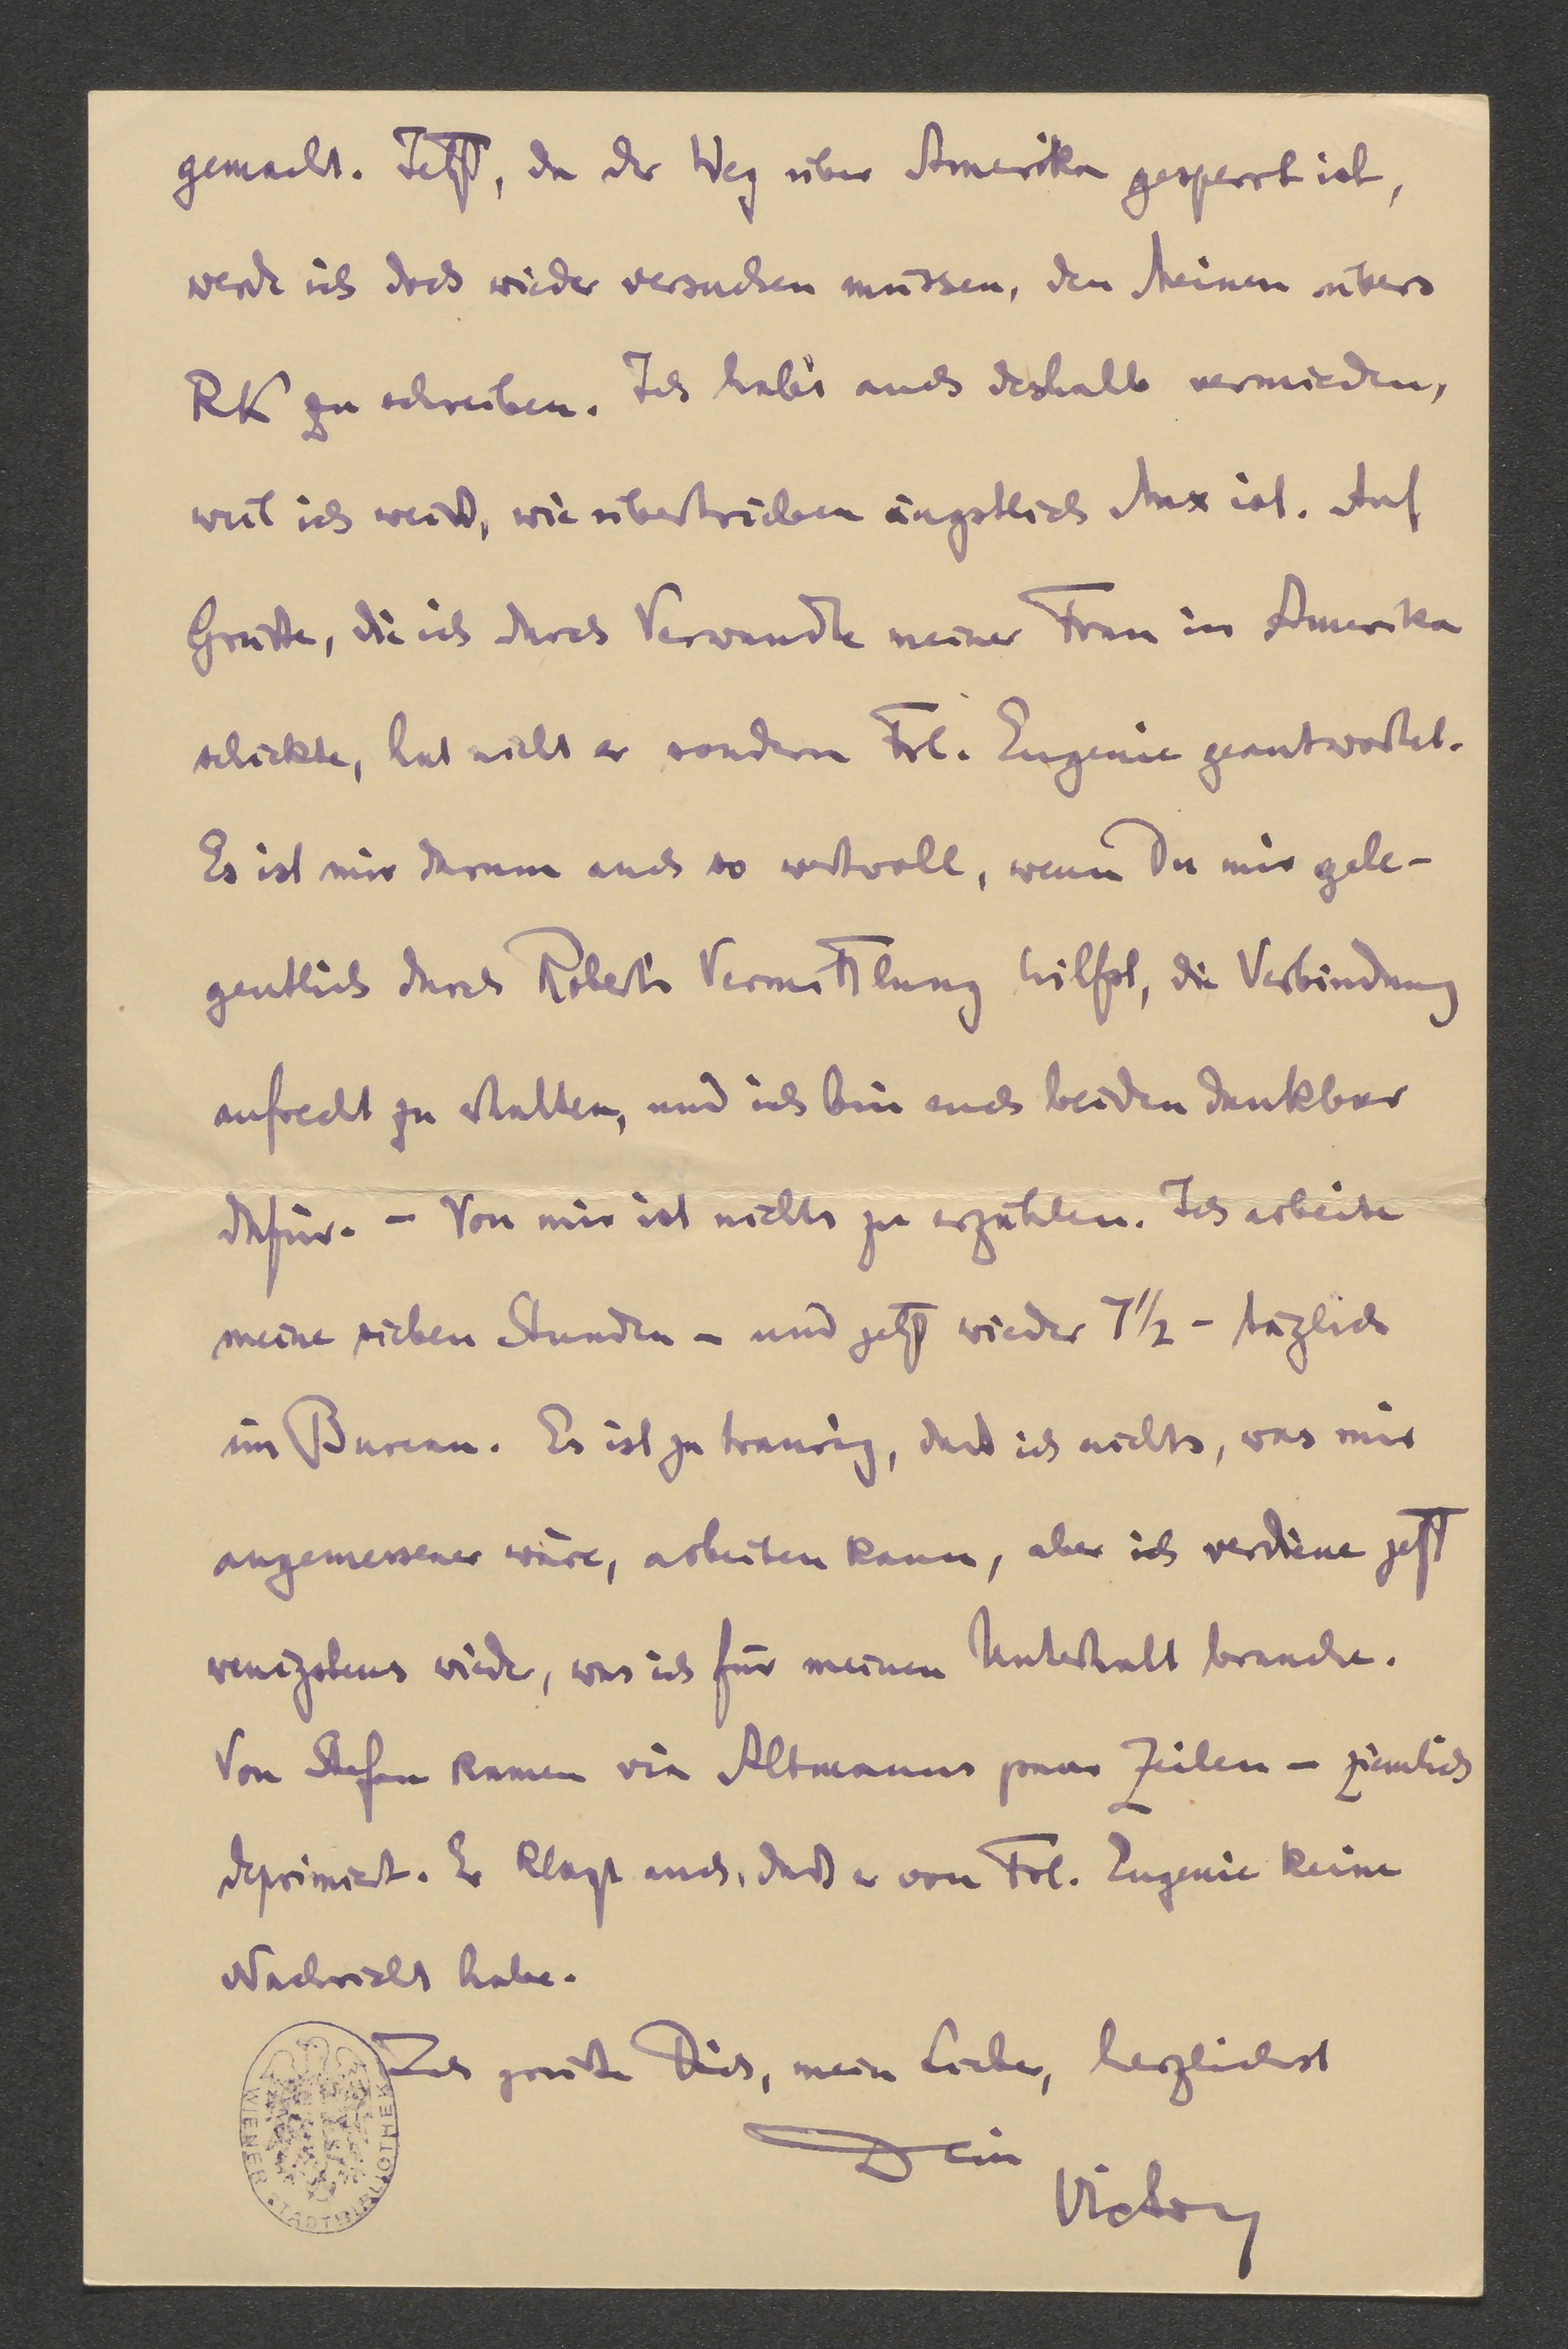 gemacht. Jetzt, da der Weg über Amerika gesperrt ist,
werde ich doch wieder versuchen müssen, den Meinen übers
RK zu schreiben. Ich hab's auch deshalb vermieden,
weil ich weiß, wie übertrieben ängstlich Max ist. Auf
Grüße, die ich durch Verwandte meiner Frau in Amerika
schickte, hat nicht er sondern Frl. Eugenie geantwortet.
Es ist mir darum auch so wertvoll, wenn Du mir gele-
gentlich durch Robert's Vermittlung hilfst, die Verbindung
aufrecht zu erhalten, und ich bin euch beiden dankbar
dafür. – Von mir ist nichts zu erzählen. Ich arbeite
meine sieben Stunden – und jetzt wieder 7 1/2 – täglich
im Bureau. Es ist zu traurig, daß ich nichts, was mir
angemessener wäre, arbeiten kann, aber ich verdiene jetzt
wenigstens wieder, was ich für meinen Unterhalt brauche.
Von Stefan kamen via Altmanns paar Zeilen – ziemlich
deprimiert. Er klagt auch, daß er von Frl. Eugenie keine
Nachricht habe.
Ich grüße Dich, mein Lieber, herzlichst
Dein
Victor
WIENER STADTBIBLIOTHEK